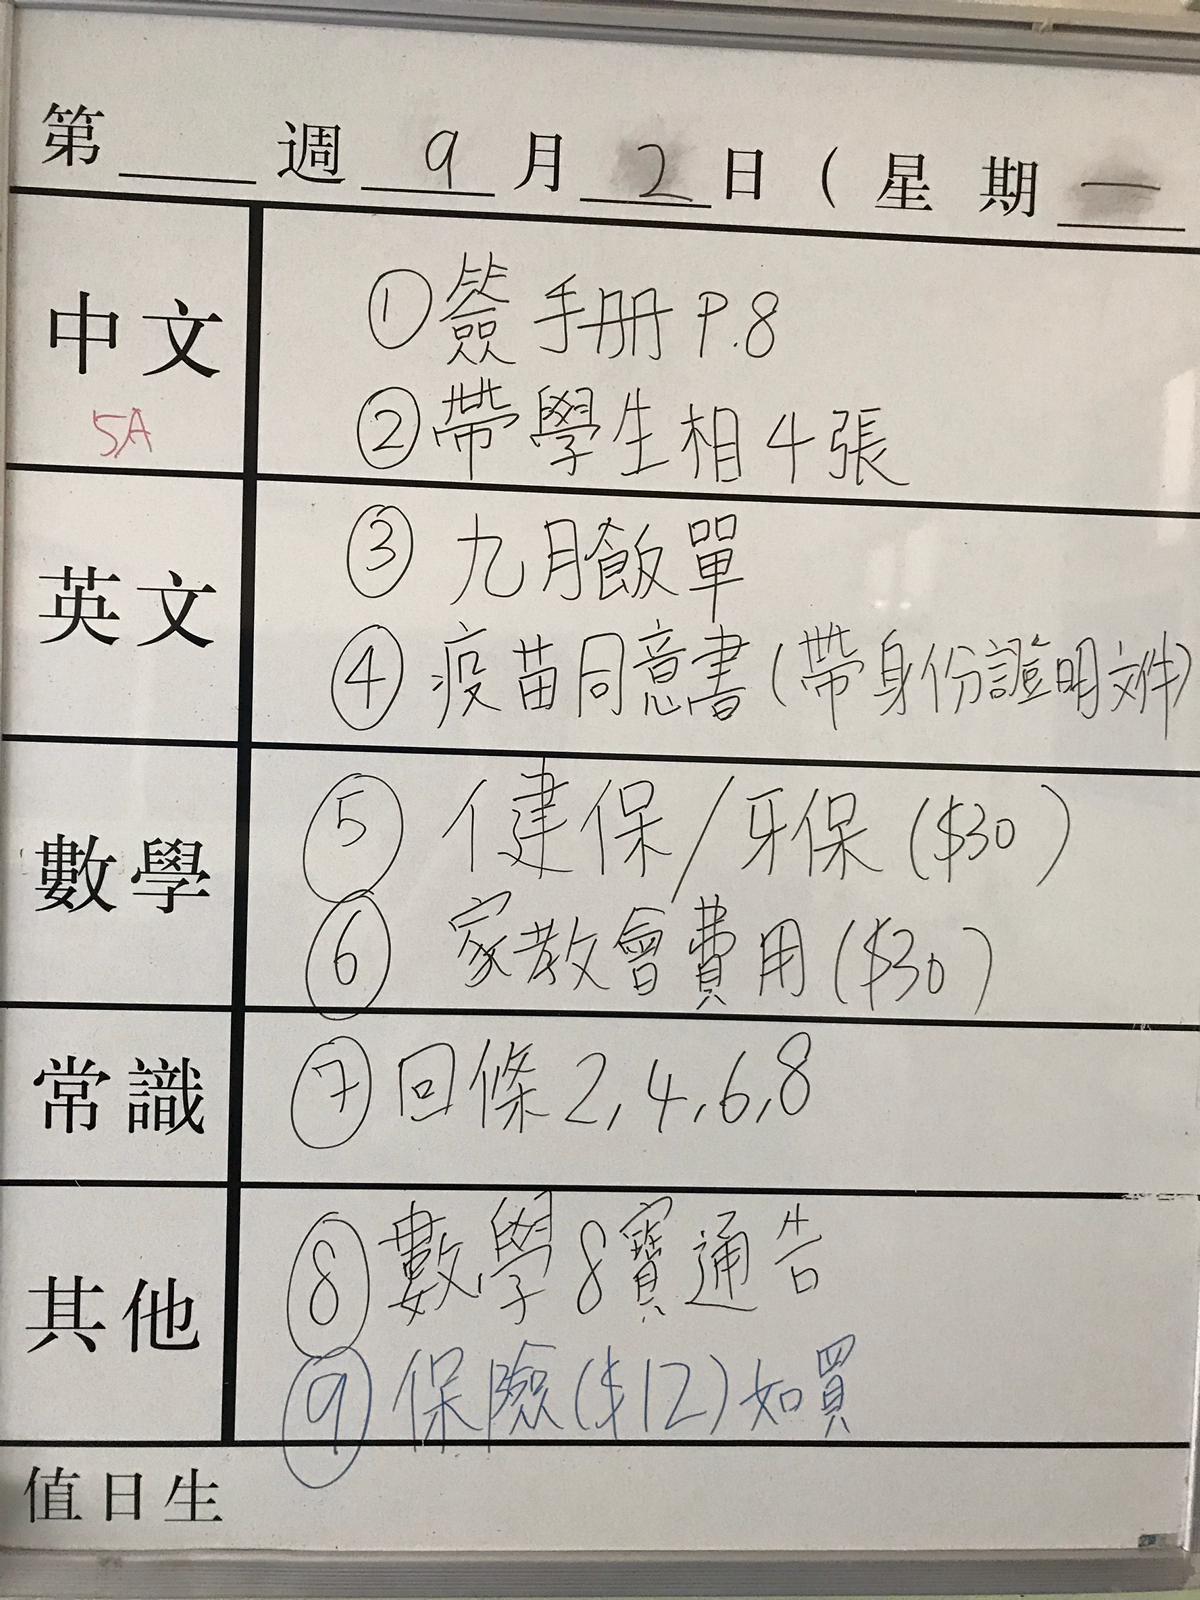 第＿＿週 9 月 2 日（星期 一
中文
5A
① 簽手冊 P.8
② 帶學生相 4 張
英文
③ 九月飯單
④ 疫苗同意書(帶身份證明文件)
數學
⑤ 健保/牙保 ($30)
⑥ 家教會費用 ($30)
常識
⑦ 回條 2,4,6,8
其他
⑧ 數學8寶通告
⑨ 保險($12)如買
值日生